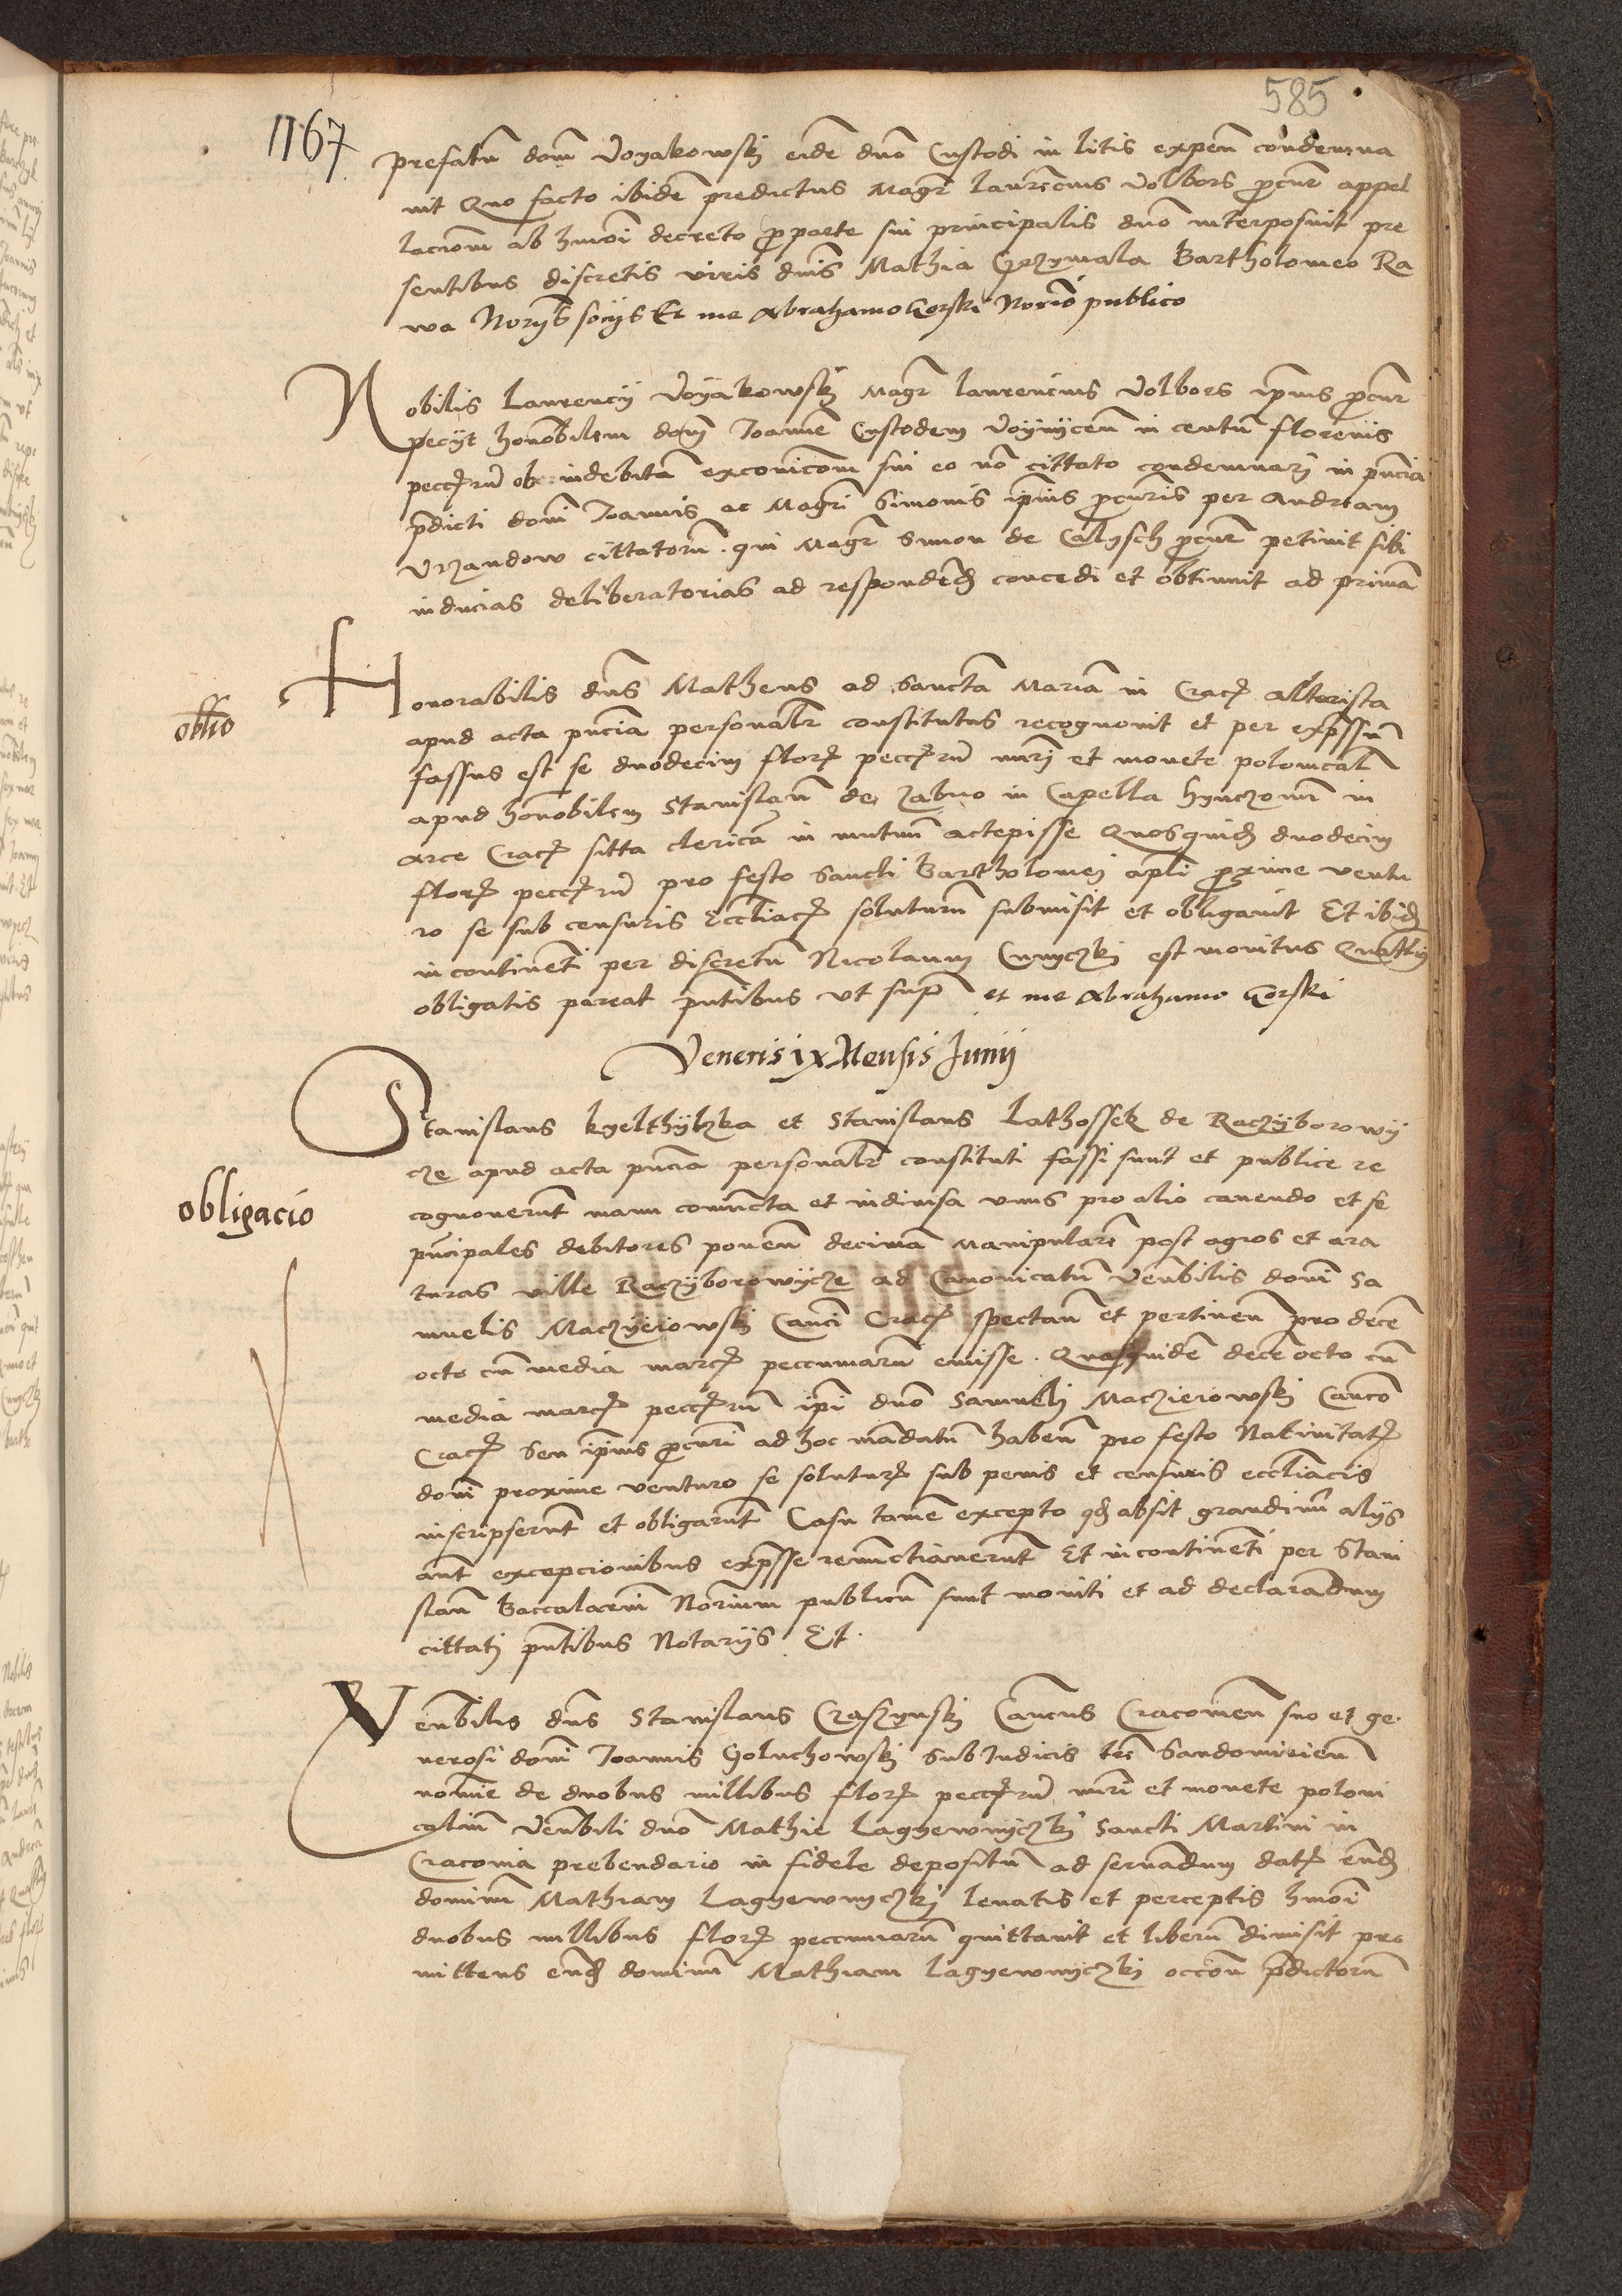 585
1167
prefatu dom Voyakowskj eide dno Custodi in litis expen condemna
uit Quo facto ibide predictus Magr Laurecius Volbors procur appel
lacionm ab hmoi decreto pro parte sui principalis dno interposuit pre
sentibus discretis viris dnis Mathia Grzymala Bartholomeo Ra
wa Norijs socijs Et me Abrahamo Gorski Norio publico
Nobilis Laurencij Voyakowskj Magr Laurencius Volbors ipius procur
pecijt honobilem dom Joanne Custodem Voynycen in centu florenis
pecciaru ob indebita exconicom sui eo no cittato condemnarj in pncia
pdicti domi Joannis ac Magri Simonis ipius procuris per Andream
Vrzandow cittatoru. qui Magr Simon de Calysch procur petiuit sibi
inducias deliberatorias ad respondend concedi et obtinuit ad prima
oblio
Honorabilis dns Matheus ad Sancta Maria in Crac Altarista
apud acta pncia personalr constitutus recognouit et per expssum
fassus est se duodecim flor pecciaru nurj et monete polonical
apud honobilem Stanislau de Zabno in Capella Hynczonis in
arce Crac sitta clerica in mutuu accepisse Quosquid duodecim
flor pecciaru pro festo Sancti Bartholomei apli proxime ventu
ro se sub censuris Eccliac soluturu submisit et obligauit Et ibid
incontineti per discretu Nicolaum est monitus Quatts
obligatis pareat pntibus vt supra et me Abrahamo Gorski
Veneris ix Mensis Junij
obligacio
Stanislaus kyelthyka et Stanislaus Lathossek de Raczyborowy
cze apud acta pncia personalr constituti fassi sunt et publice re
cognouerut manu coniuncta et indiuisa vnus pro alio cauendo et se
pncipales debitores ponen decima manipulare post agros et ara
turas ville Raczyborowycze ad Canonicatu Venbilis domi Sa
muelis Maczyeiowskj Canci Crac spectan et pertinen pro dece
octo cu media marc peccuniaru emisse. Quasquide dece octo cu
media marc pecciaru ipi dno Samueli Maczieiowskj Canco
Crac Seu ipius procuri ad hoc mandatu haben pro festo Natiuitat
domi proxime venturo se solutur sub penis et censuris eccliacis
inscripserut et obligarut Casu tame excepto qd absit grandinu alijs
aut excepcionibus expsse renuncciauerut Et incontineti per Stani
slau Baccalareu Norium publicu sunt moniti et ad declarandum
cittati pntibus Notarijs Et.
Venbilis dns Stanislaus Craszynskj Cancus Cracouien suo et ge
nerosi domi Joannis Goluchowskj SubJudicis terre Sandomirien
nomie de duobus millibus flor pecciaru nuri et monete poloni
caliu Venbili dno Mathie Lagyewnyczkj Sancti Martini in
Cracouia prebendario in fidele depositu ad seruandum dat eund
dominu Mathiam Lagyewnyczkj leuatis et perceptis hmoi
duobus millibus flor peccuniaru quittauit et liberu dimisit pro
mittens eund dominu Mathiam Lagyewnyczkj occon pdictoru